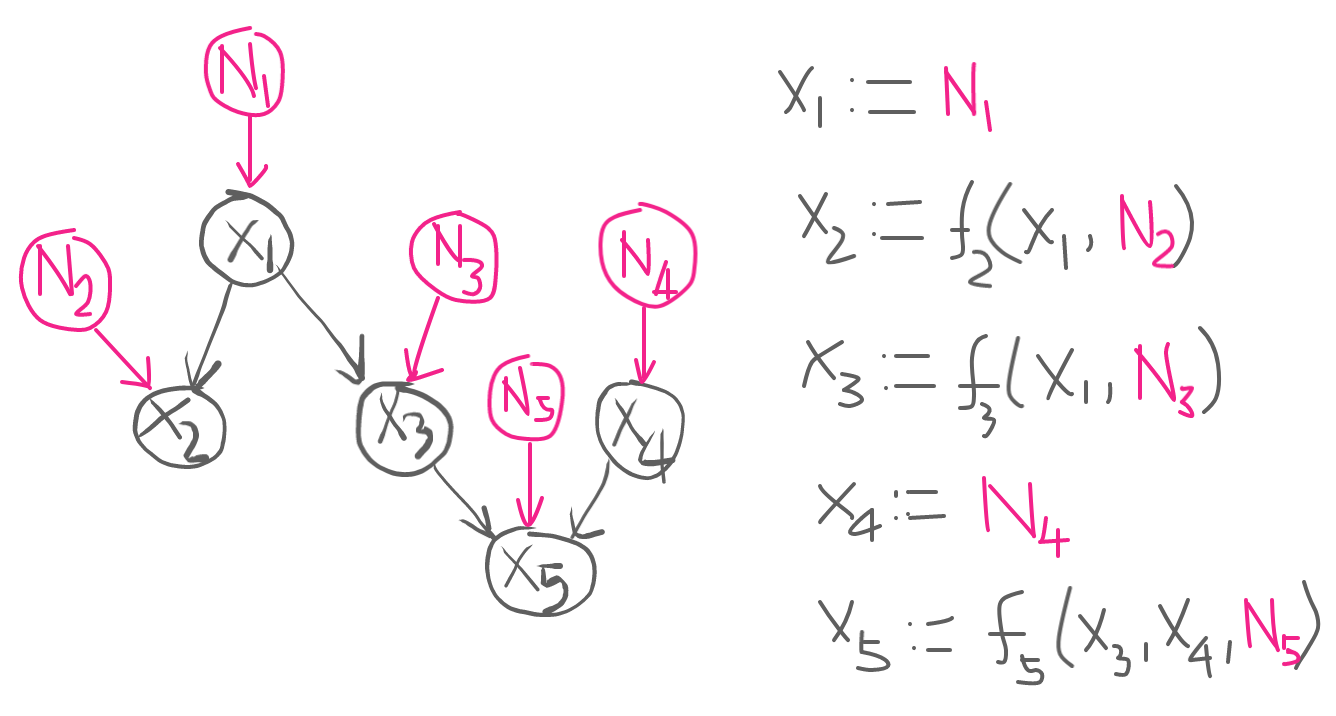 N₁
X₁
N₂
N₃
N₄
X₂
X₃
N₅
X₄
X₅
X₁ := N₁
X₂ := f₂(X₁, N₂)
X₃ := f₃(X₁, N₃)
X₄ := N₄
X₅ := f₅(X₃, X₄, N₅)